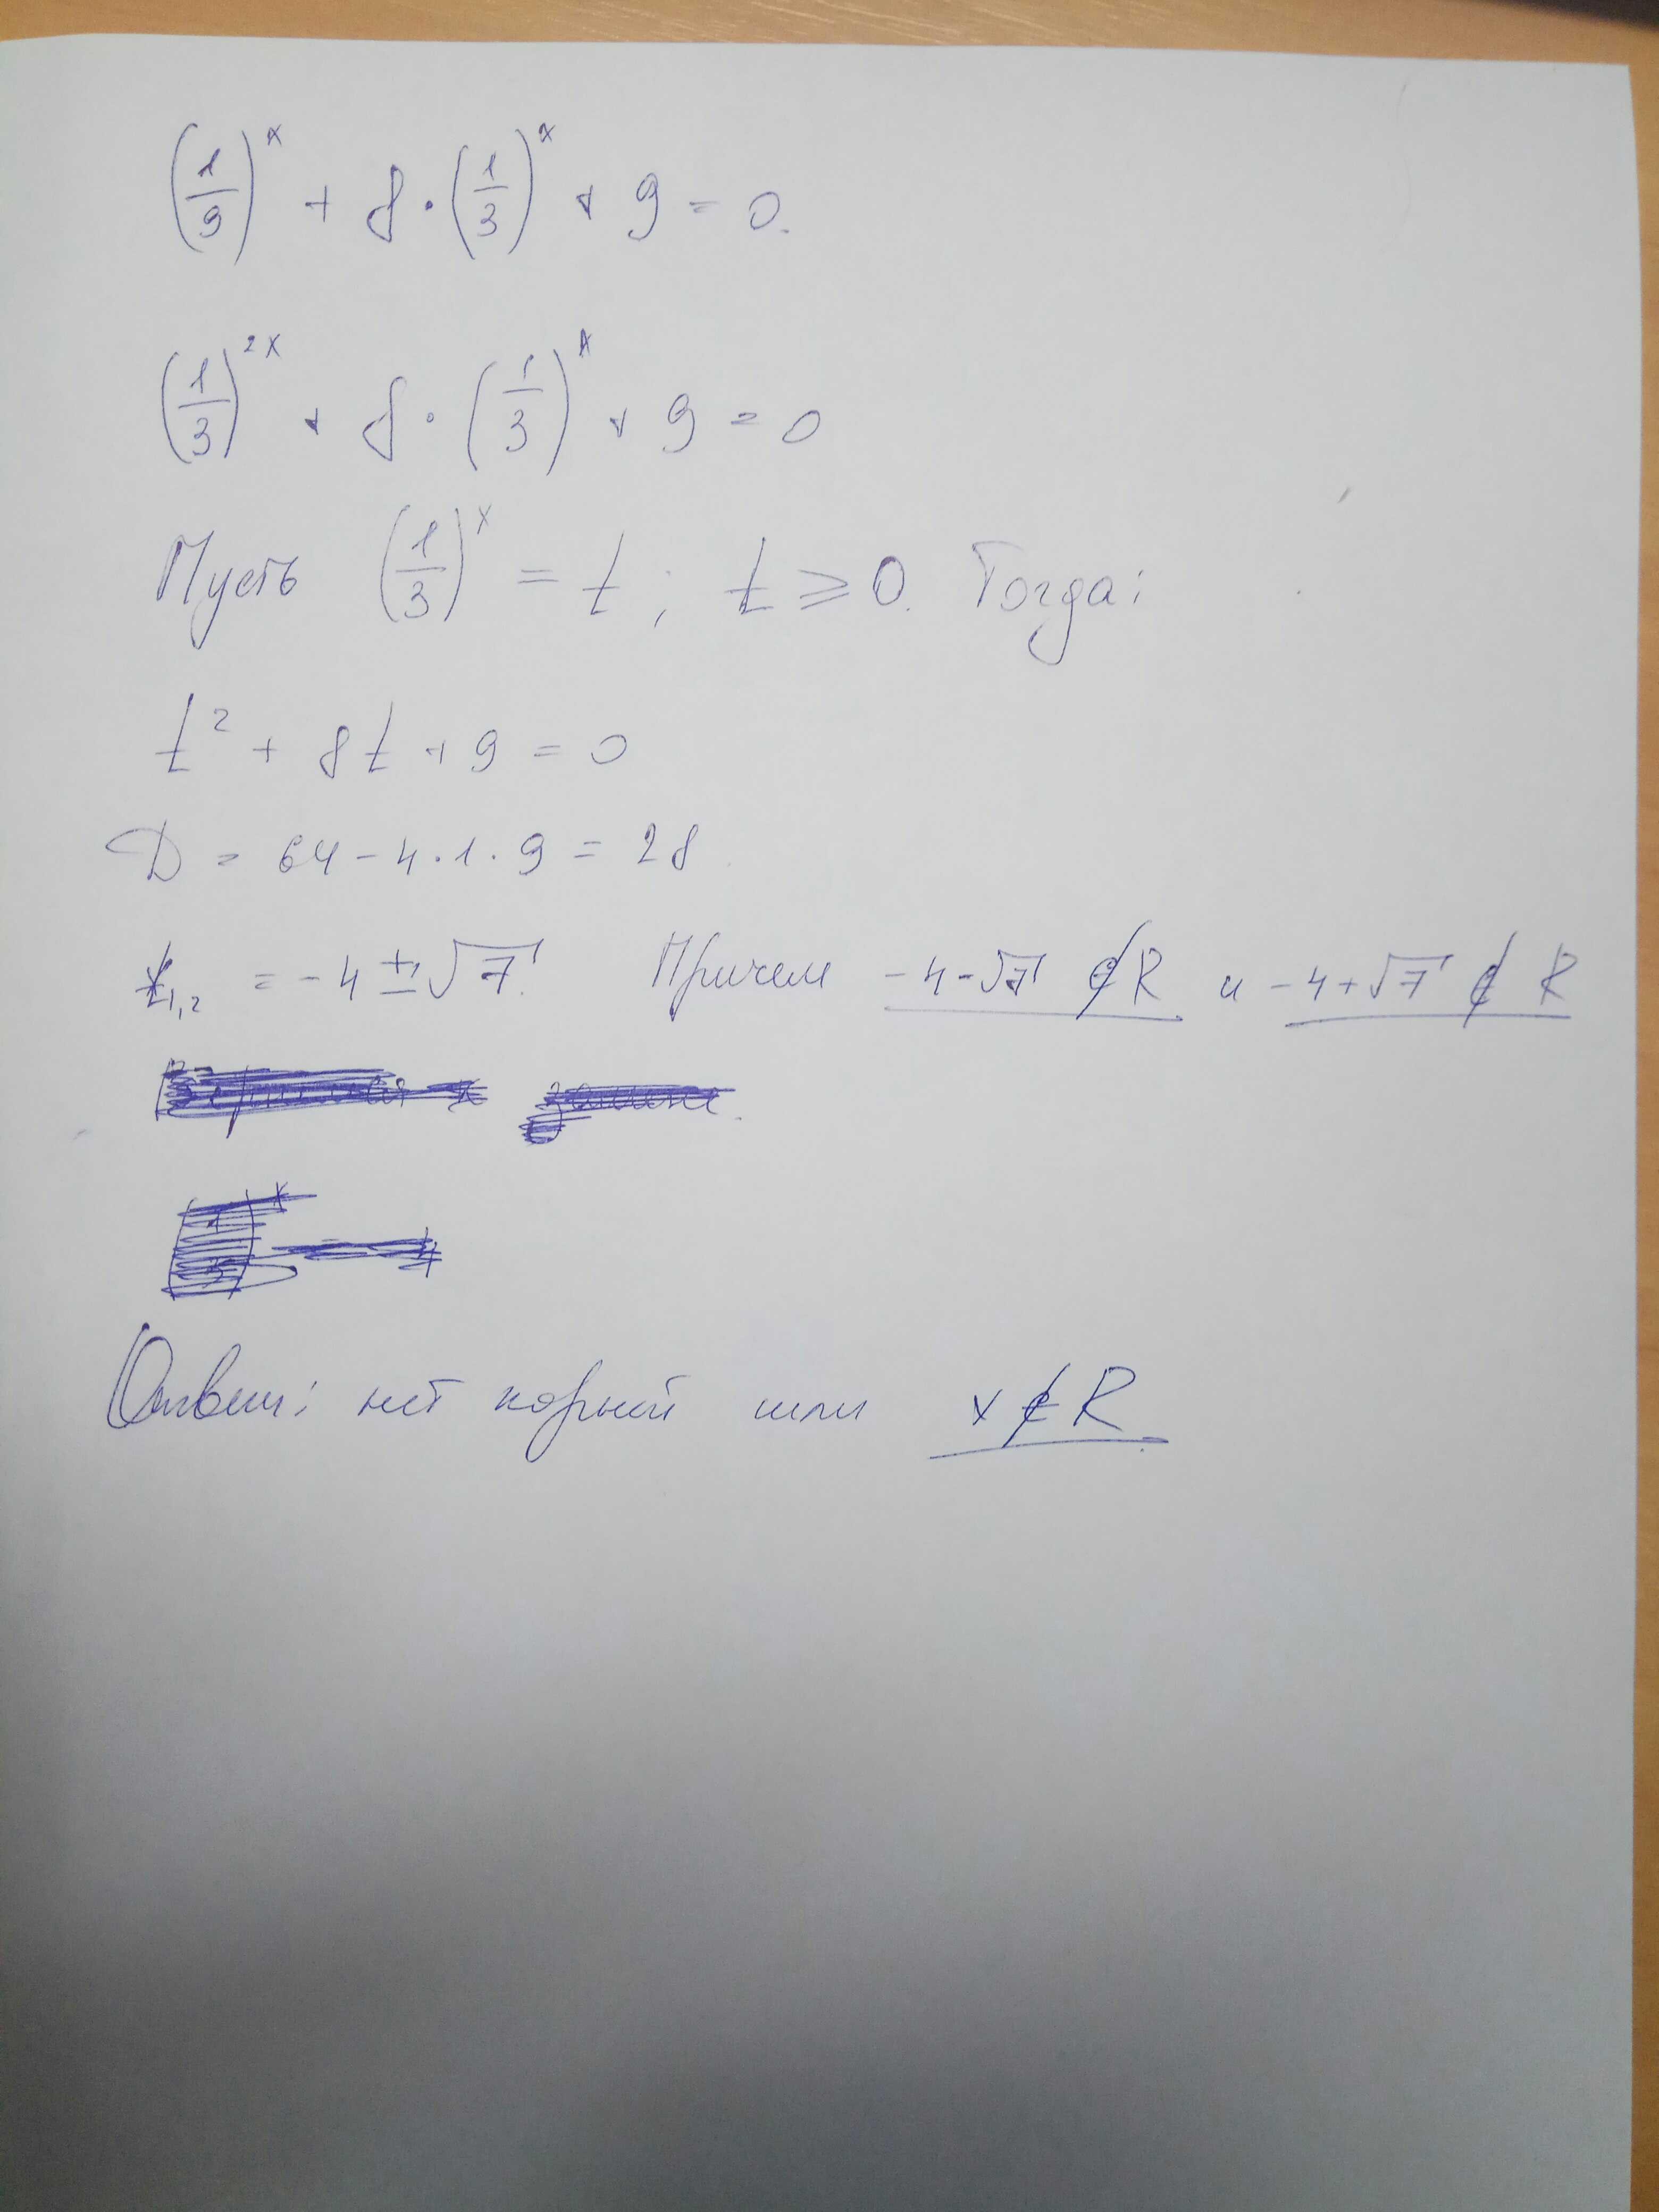 (1/9)^x + 8 · (1/3)^x + 9 = 0.
(1/3)^2x + 8 · (1/3)^x + 9 = 0
Пусть (1/3)^x = t; t ⩾ 0. Тогда:
t² + 8t + 9 = 0
D = 64 - 4 · 1 · 9 = 28
t1,2 = -4 ± √7. Причем -4-√7 ∉ R и -4+√7 ∉ R
Ответ: нет корней или x ∉ R